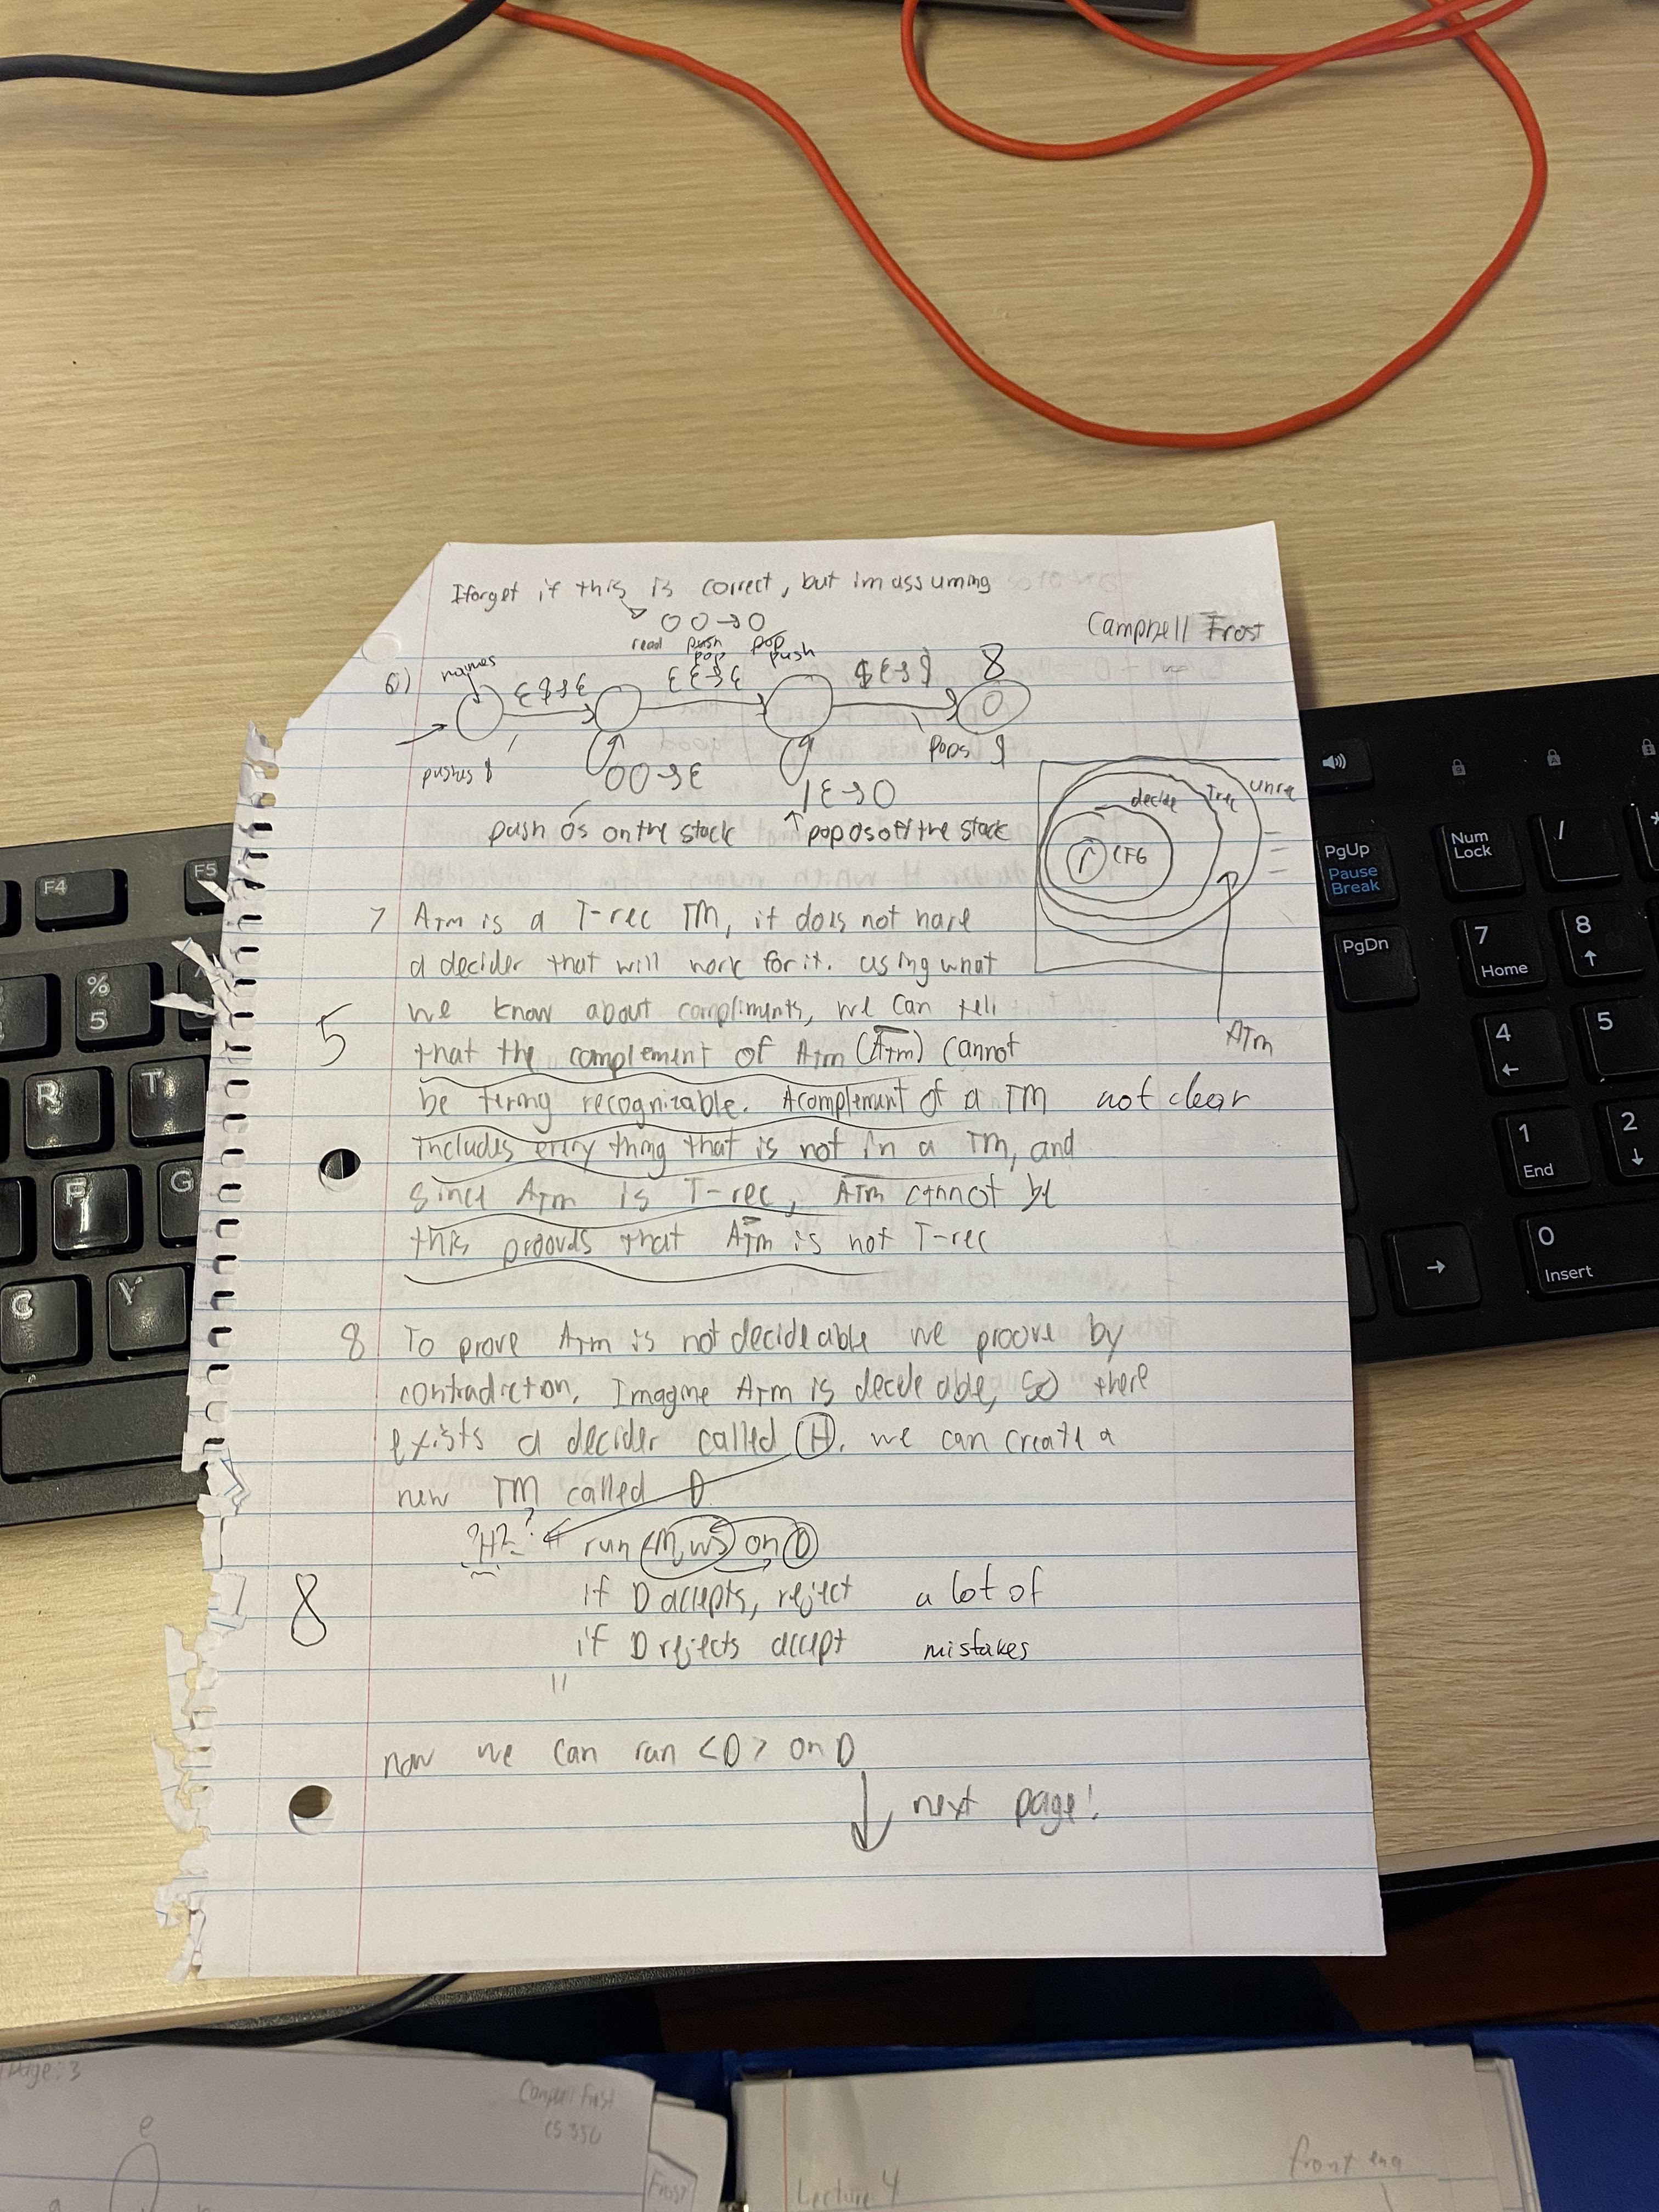 I forget if this is correct, but im assuming
00→0
Campbell Frost
read push pop
pop push
6)
ε$→ε
εε→ε
$ε→$
8
pushes $
pops $
00→ε
1ε→0
push 0s on the stack
pop 0s off the stack
decide
Trec
unrec
r
CFG
ATM
7 ATM is a T-rec TM, it does not have
a decider that will work for it. using what
we know about compliments, we can tell
5
that the complement of ATM (ATM) cannot
be turing recognizable. A complement of a TM not clear
includes every thing that is not in a TM, and
since ATM is T-rec, ATM cannot be
this proovds that ATM is not T-rec
8 To prove ATM is not decideable we proove by
contradiction. Imagine ATM is decideable, so there
exists a decider called H. we can create a
new TM called D
?H? ? " run <M,w> on D
8
if D accepts, reject a lot of
if D rejects accept mistakes
"
now we can run <D> on D
next page!
Page: 3
Campbell Frost
CS 350
e
Frost
Lecture 4
front
F4
F5
%
5
R
T
F
G
C
V
PgUp
Pause
Break
PgDn
Num
Lock
/
*
7
Home
8
↑
4
←
5
1
End
2
↓
→
0
Insert